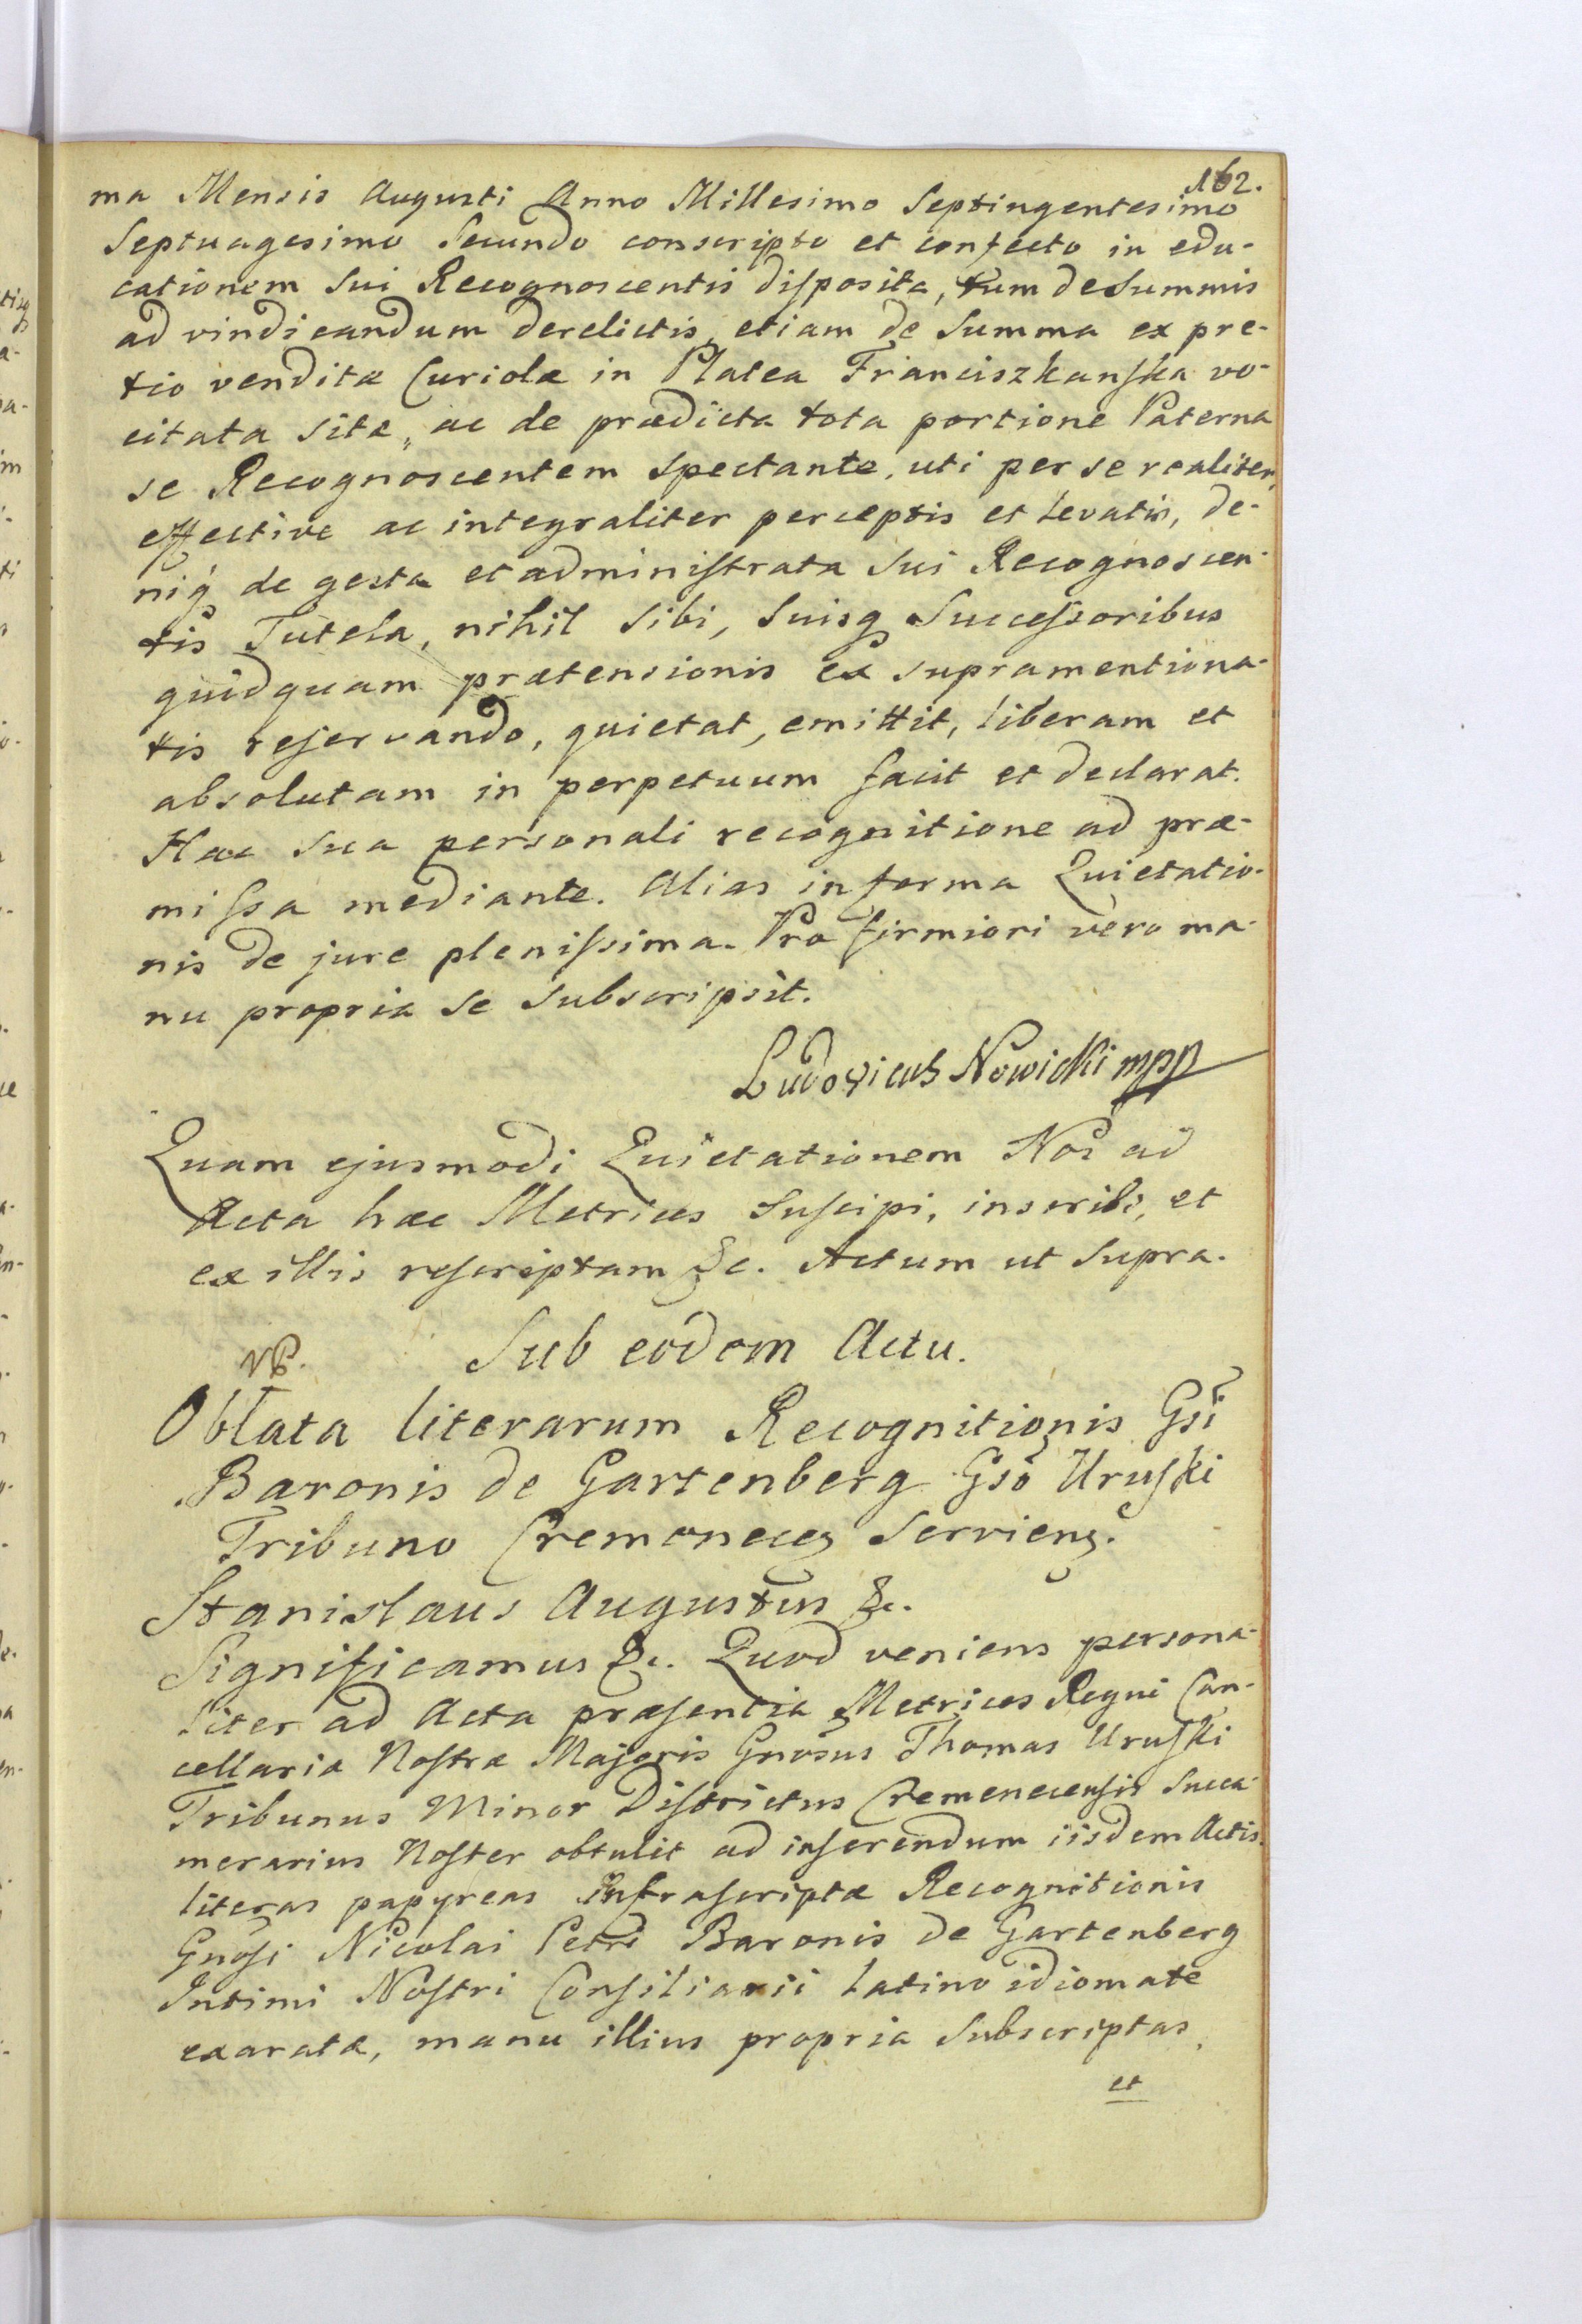 162.
ma Mensis Augusti Anno Millesimo Septingentesimo
Septuagesimo Secundo conscripto et confecto in edu-
cationem sui Recognoscentis disposita, tum de Summis
ad vindicandum derelictis, etiam de Summa ex pre-
tio venditæ Curiolæ in Platea Franciszkanska vo-
citata sitæ, ac de prædicta tota portione Paterna
se Recognoscentem spectante, uti per se realiter,
effective ac integraliter perceptis et levatis, de-
niq de gesta et administrata sui Recognoscen-
tis Tutela, nihil sibi, suisq Successoribus
quidquam prætensionis ex supramentiona-
tis reservando, quietat, emittit, liberam et
absolutam in perpetuum facit et declarat.
Hac sua personali recognitione ad præ-
missa mediante. Alias in forma Quietatio-
nis de jure plenissima. Pro firmiori vero ma-
nu propria se subscripsit.
Ludovicus Nowicki mpp
Quam ejusmodi Quietationem Nos ad
Acta hæc Metrices suscipi, inscribi, et
ex illis rescriptam &c. Actum ut supra.
Sub eodem Actu.
Oblata literarum Recognitionis Gsi
Baronis de Gartenberg Gso Uruski
Tribuno Cremenecen Servien.
Stanislaus Augustus &c.
Significamus &c. Quod veniens persona-
liter ad Acta præsentia Metrices Regni Can-
cellariæ Nostræ Majoris Gnosus Thomas Uruski
Tribunus Minor Districtus Cremenecensis Succa-
merarius Noster obtulit ad inserendum iisdem Actis
literas papyreas infrascriptæ Recognitionis
Gnosi Nicolai Petri Baronis de Gartenberg
Intimi Nostri Consiliarii latino idiomate
exaratæ, manu illius propria subscriptas,
et